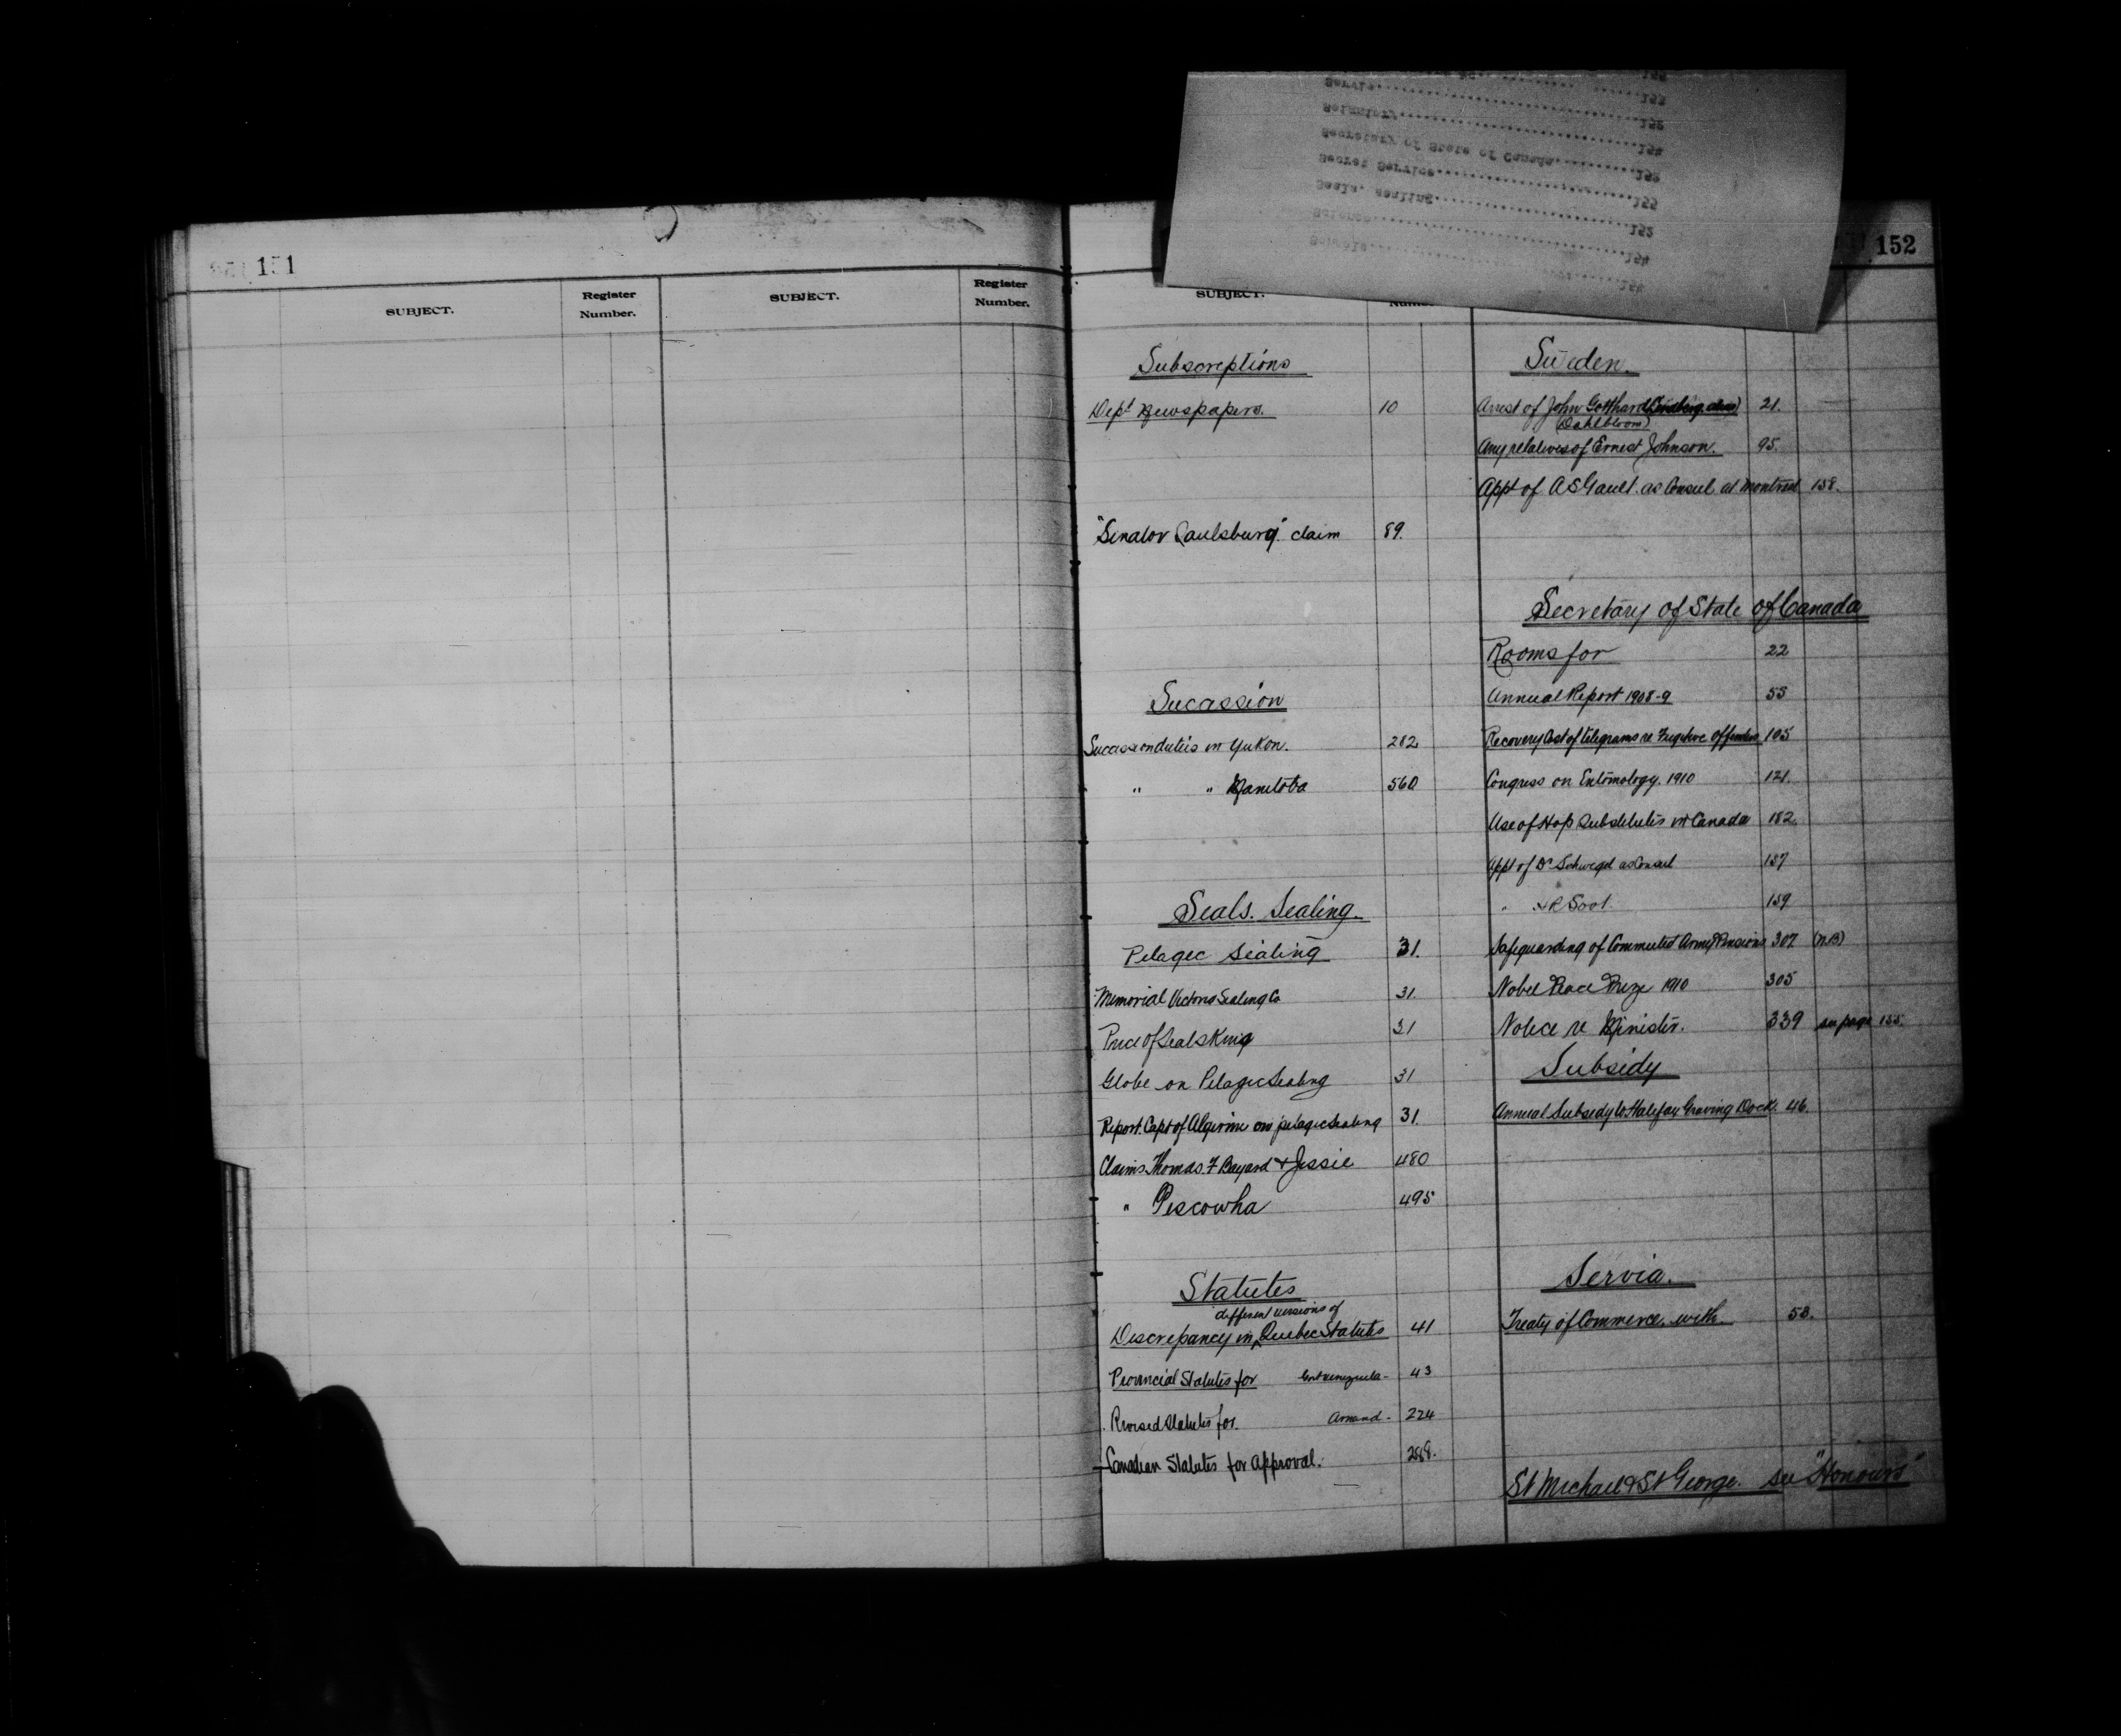 151
SUBJECT.
Register Number.
SUBJECT.
Register Number.
152
SUBJECT.
Subscriptions
Dept Newspapers. 10
"Senator Saulsbury" claim 89.
Sucession
Sucession duties in Yukon. 282
" " Manitoba 560
Seals. Sealing.
Pelagic Sealing 31.
Memorial Victoria Sealing Co 31.
Price of Sealskins 31
Globe on Pelagic Sealing 31
Report. Capt of Algerine on pelagic sealing 31.
Claims Thomas F Bayard & Jessie 480
" Pescawha 495
Statutes
different versions of
Discrepancy in Quebec Statutes 41
Provincial Statutes for Venezuela - 43
Revised Statutes for. Amand - 224
Canadian Statutes for Approval. 288.
Sweden.
Arrest of John Gotthard Lindberg. alias 21.
(Dahlbloom)
Any relatives of Ernest Johnson. 95.
Appt of A S Gault. as Consul at Montreal 158.
Secretary of State of Canada
Rooms for 22
Annual Report 1908-9 55
Recovery Cost of telegrams re Fugitive Offenders 105
Congress on Entomology. 1910 121.
Use of Hop Substitutes in Canada 182.
Appt of Dr Schwegel as Consul 157
" 159
Safeguarding of Commuted Army Pensions 307 (N.B)
Nobel Peace Prize 1910 305
Notice re Minister. 339 see page 155.
Subsidy
Annual Subsidy to Halifax Graving Dock. 46.
Servia.
Treaty of Commerce. with 53.
St Michael & St George. see "Honours"
Servia 152
Solunlory
Secretary of State of Canada 152
Secret Service 155
Seals, sealing 152
Science 154
Schools